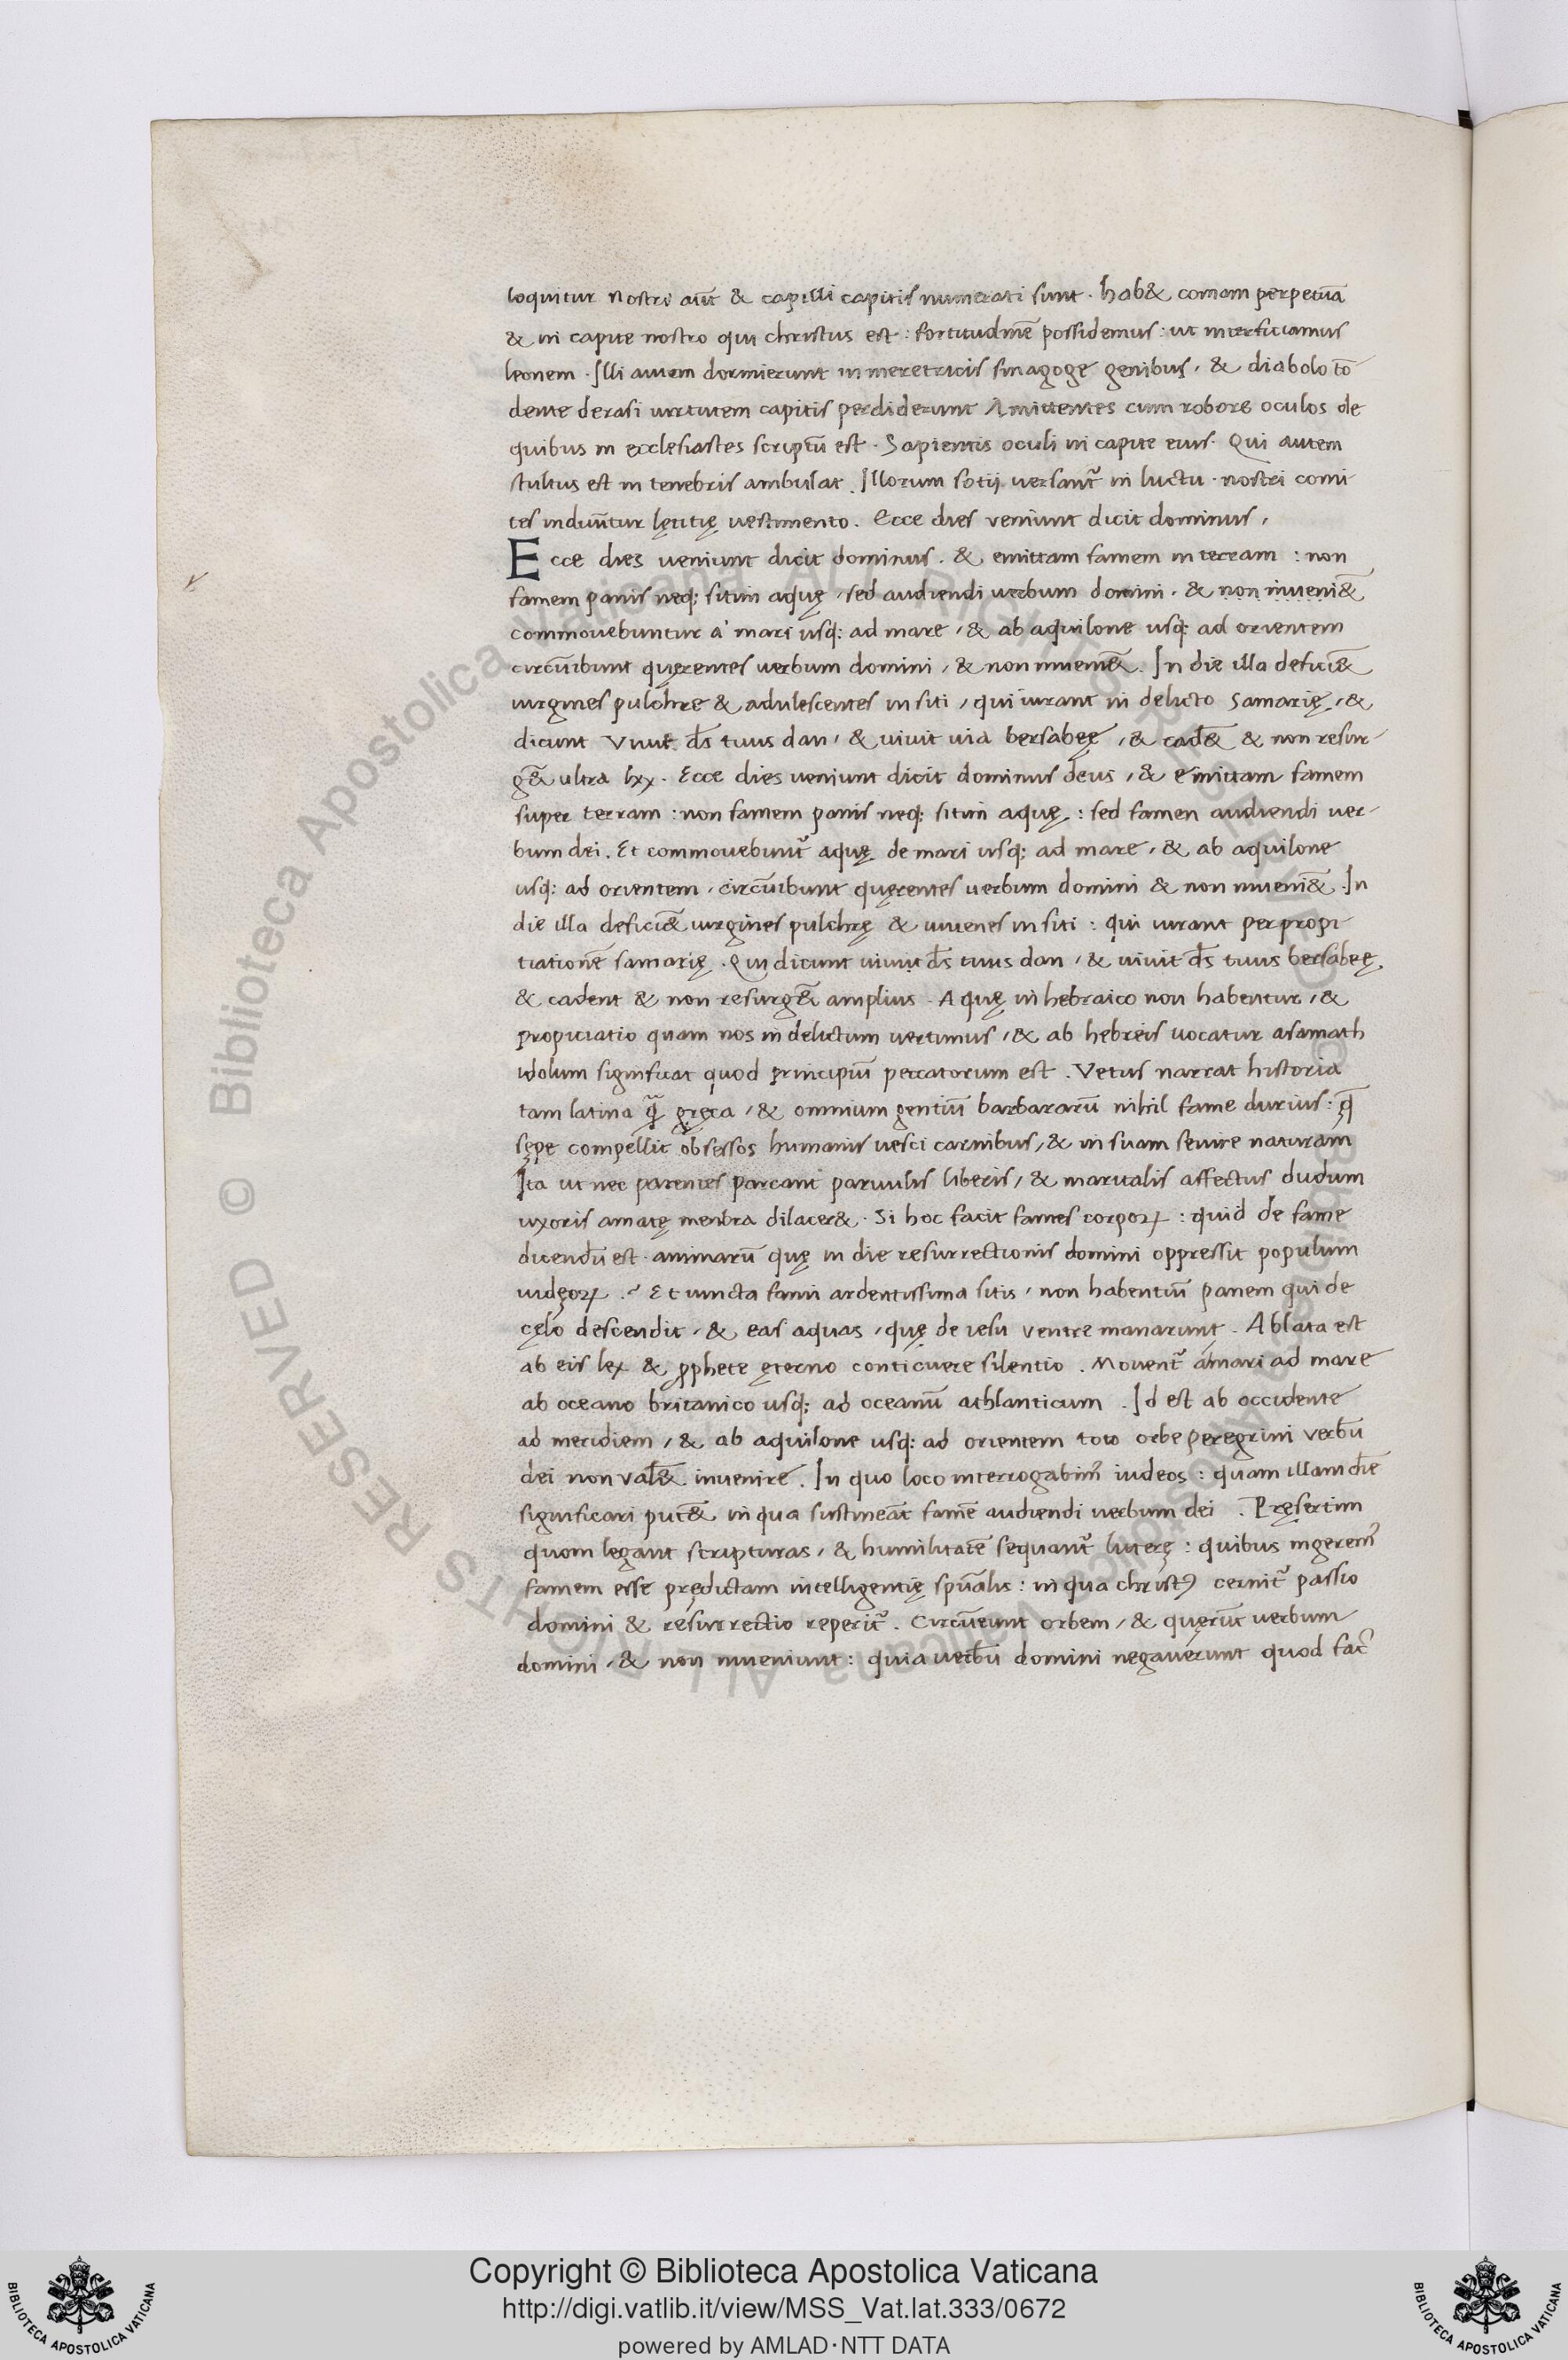 loquitur nostri aūt & capilli capitis numerati sunt . hab& comam perpetuā
& in capite nostro qui christus est : fortitudinē possidemus : ut interficiamus
leonem . Illi autem dormierunt in meretricis sinagoge genibus , & diabolo tō
dente derasi virtutem capitis perdiderunt Amittentes cum robore oculos de
quibus in ecclesiastes scriptū est . Sapientis oculi in capite eius . Qui autem
stultus est in tenebris ambulat . Illorum sotij versant᷑ in luctu . nostri comi
tes induūtur lętitię uestimento . Ecce dies veniunt dicit dominus ,
Ecce dies ueniunt dicit dominus . & emittam famem in terram : non
famem panis neq; sitim aquę , sed audiendi uerbum domini . & non inueni&̄
commouebuntur a' mari usq; ad mare , & ab aquilone usq; ad orientem
circūibunt quęrentes uerbum domini , & non inueni&̄ . In die illa defici&̄
uirgines pulchre & adulescentes in siti , qui iurant in delicto Samarię , &
dicunt Viuit d̄s tuus dan , & uiuit uia bersabeę , & cad&̄ & non resur-
g&̄ ultra lxx . Ecce dies ueniunt dicit dominus deus , & emittam famem
super terram : non famem panis neq; sitim aquę : sed famen audiendi uer-
bum dei . Et commouebunt᷑ aquę de mari usq; ad mare , & ab aquilone
usq; ad orientem , circūibunt quęrentes uerbum domini & non inueni&̄ . In
die illa defici&̄ uirgines pulchrę & iuuenes in siti : qui iurant per propi
tiationē samarię . Qui dicunt uiuit d̄s tuus dan , & uiuit d̄s tuus bersabeę
& cadent & non resurg&̄ amplius . Aquę in hebraico non habentur , &
propiciatio quam nos in delictum uertimus , & ab hebreis uocatur asamath
idolum significat quod principiū peccatorum est . Vetus narrat historia
tam latina q̄ gręca , & omnium gentiū barbararū nihil fame durius : q̄
sępe compellit obsessos humanis uesci carnibus , & in suam seuire naturam
Ita ut nec parentes parcant paruulis liberis , & maritalis affectus dudum
uxoris amatę menbra dilacer& . Si hoc facit fames corpoꝝ : quid de fame
dicendū est . animarū quę in die resurrectionis domini oppressit populum
iudęoꝝ .? Et iuncta fami ardentissima sitis , non habentiū panem qui de
cęlo descendit , & eas aquas , quę de iesu ventre manarunt . Ablata est
ab eis lex & ꝓphete ęterno conticuere silentio . Mouent᷑ amari ad mare
ab oceano britanico usq; ad oceanū athlanticum . Id est ab occidente
ad meridiem , & ab aquilone usq; ad orientem toto orbe peregrini verbū
dei non val&̄ inuenire . In quo loco interrogabim᷒ iudeos : quam illam diē
significari put&̄ in qua sustineāt famē audiendi uerbum dei . Pręsertim
quom legant scripturas , & humilitatē sequant᷑ litterę : quibus ingerem᷒
famem esse prędictam intelligentię spūalis : in qua christꝰ cernit᷑ passio
domini & resurrectio reperit᷑ . Circūeunt orbem , & quęrūt uerbum
domini , & non inueniunt : quia uerbū domini negauerunt quod fac̄
Copyright © Biblioteca Apostolica Vaticana
http://digi.vatlib.it/view/MSS_Vat.lat.333/0672
powered by AMLAD·NTT DATA